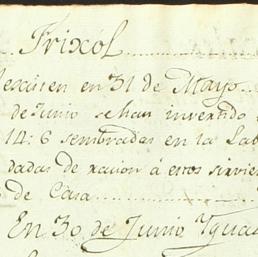 Frixol
en 31 de Mayo
de Junio se han invertido
14:6 sembradas en la Lab
dadas de racion á estos sirvie
de Casa
En 30 de Junio Yguas